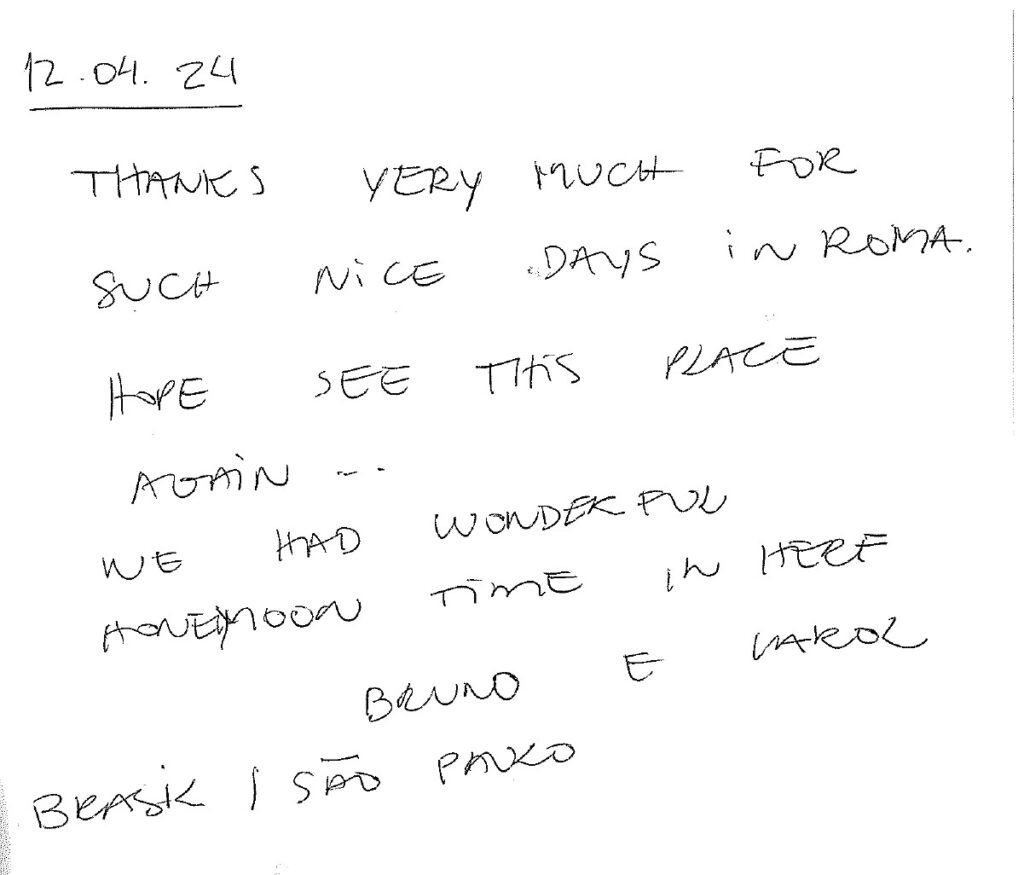 12.04.24
THANKS VERY MUCH FOR
SUCH NiCE DAYS iN ROMA.
HOPE SEE THiS PLACE
AGAiN ...
WE HAD WONDERFUL
HONEYMOON TiME IN HERE
BRUNO E KAROL
BRASiL / SÃO PAULO